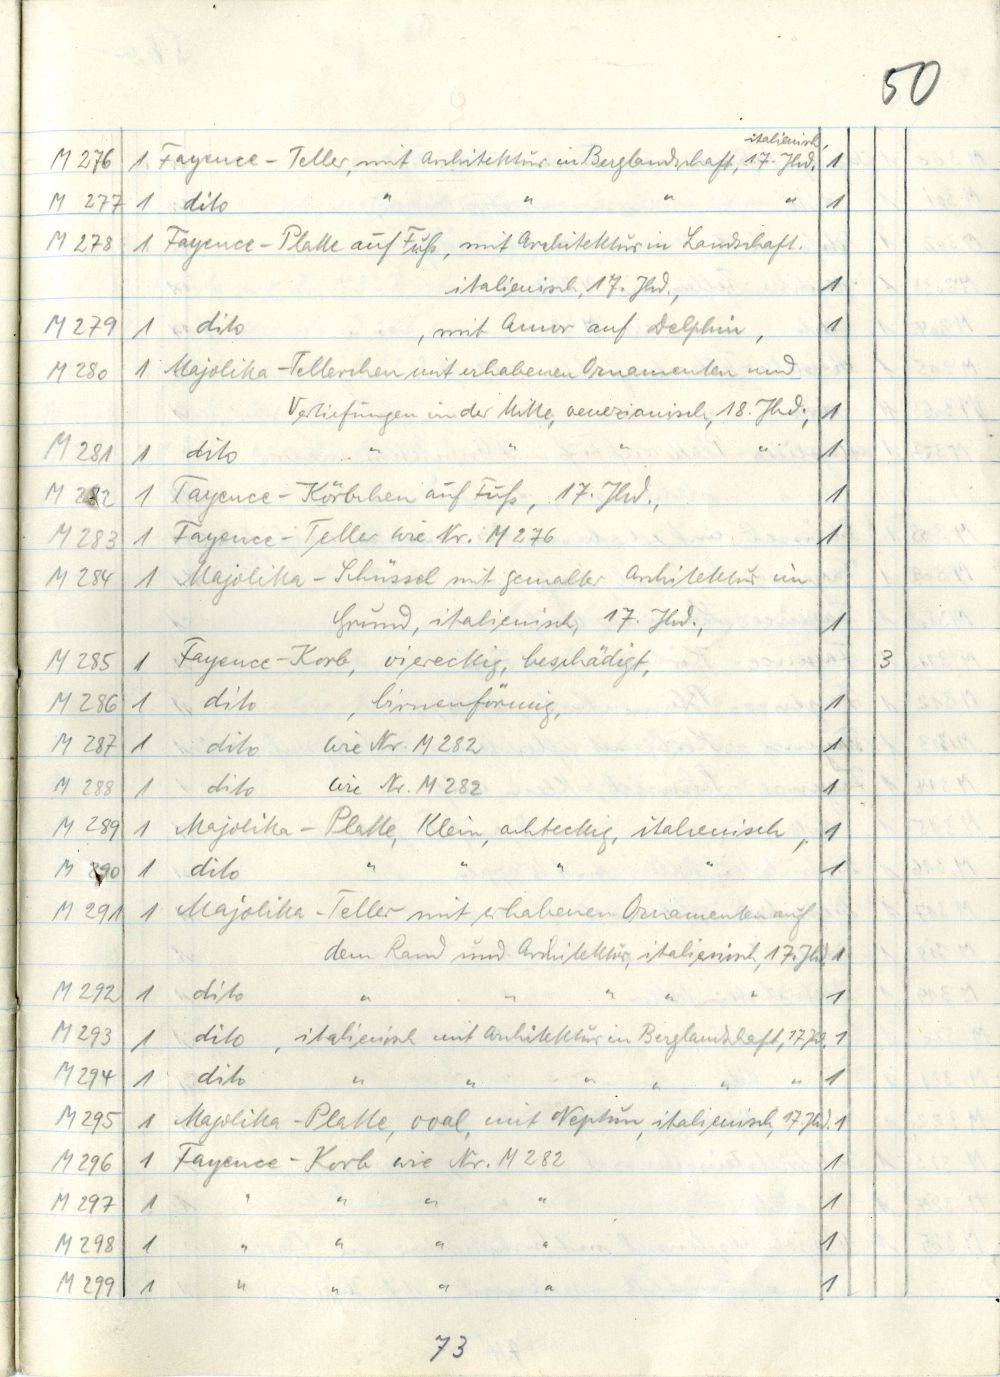 50
italienisch,
M 276 1 Fayence - Teller, mit Architektur in Berglandschaft, 17. Jhd. 1
M 277 1 dito " " " " 1
M 278 1 Fayence - Platte auf Fuß, mit Architektur in Landschaft.
italienisch, 17. Jhd., 1
M 279 1 dito , mit Amor auf Delphin, 1
M 280 1 Majolika - Tellerchen mit erhabenen Ornamenten und
Vertiefungen in der Mitte, venezianisch, 18. Jhd., 1
M 281 1 dito " " " " 1
M 282 1 Fayence - Körbchen auf Fuß, 17. Jhd., 1
M 283 1 Fayence - Teller wie Nr. M 276 1
M 284 1 Majolika - Schüssel mit gemalter Architektur im
Grund, italienisch, 17. Jhd., 1
M 285 1 Fayence - Korb, viereckig, beschädigt, 3
M 286 1 dito , birnenförmig, 1
M 287 1 dito wie Nr. M 282 1
M 288 1 dito wie Nr. M 282 1
M 289 1 Majolika - Platte, Klein, achteckig, italienisch, 1
M 290 1 dito " " " " 1
M 291 1 Majolika - Teller mit erhabenen Ornamenten auf
dem Rand und Architektur, italienisch, 17. Jhd 1
M 292 1 dito " " " " " 1
M 293 1 dito , italienisch mit Architektur in Berglandschaft, 17. Jhd. 1
M 294 1 dito " " " " " " 1
M 295 1 Majolika - Platte, oval, mit Neptun, italienisch, 17. Jhd. 1
M 296 1 Fayence - Korb wie Nr. M 282 1
M 297 1 " " " " 1
M 298 1 " " " " 1
M 299 1 " " " " 1
73